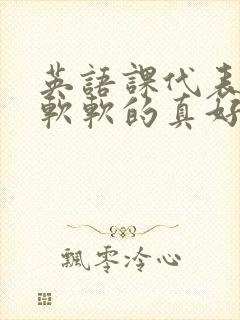 英語課代表
軟軟的真好
飄零冷心